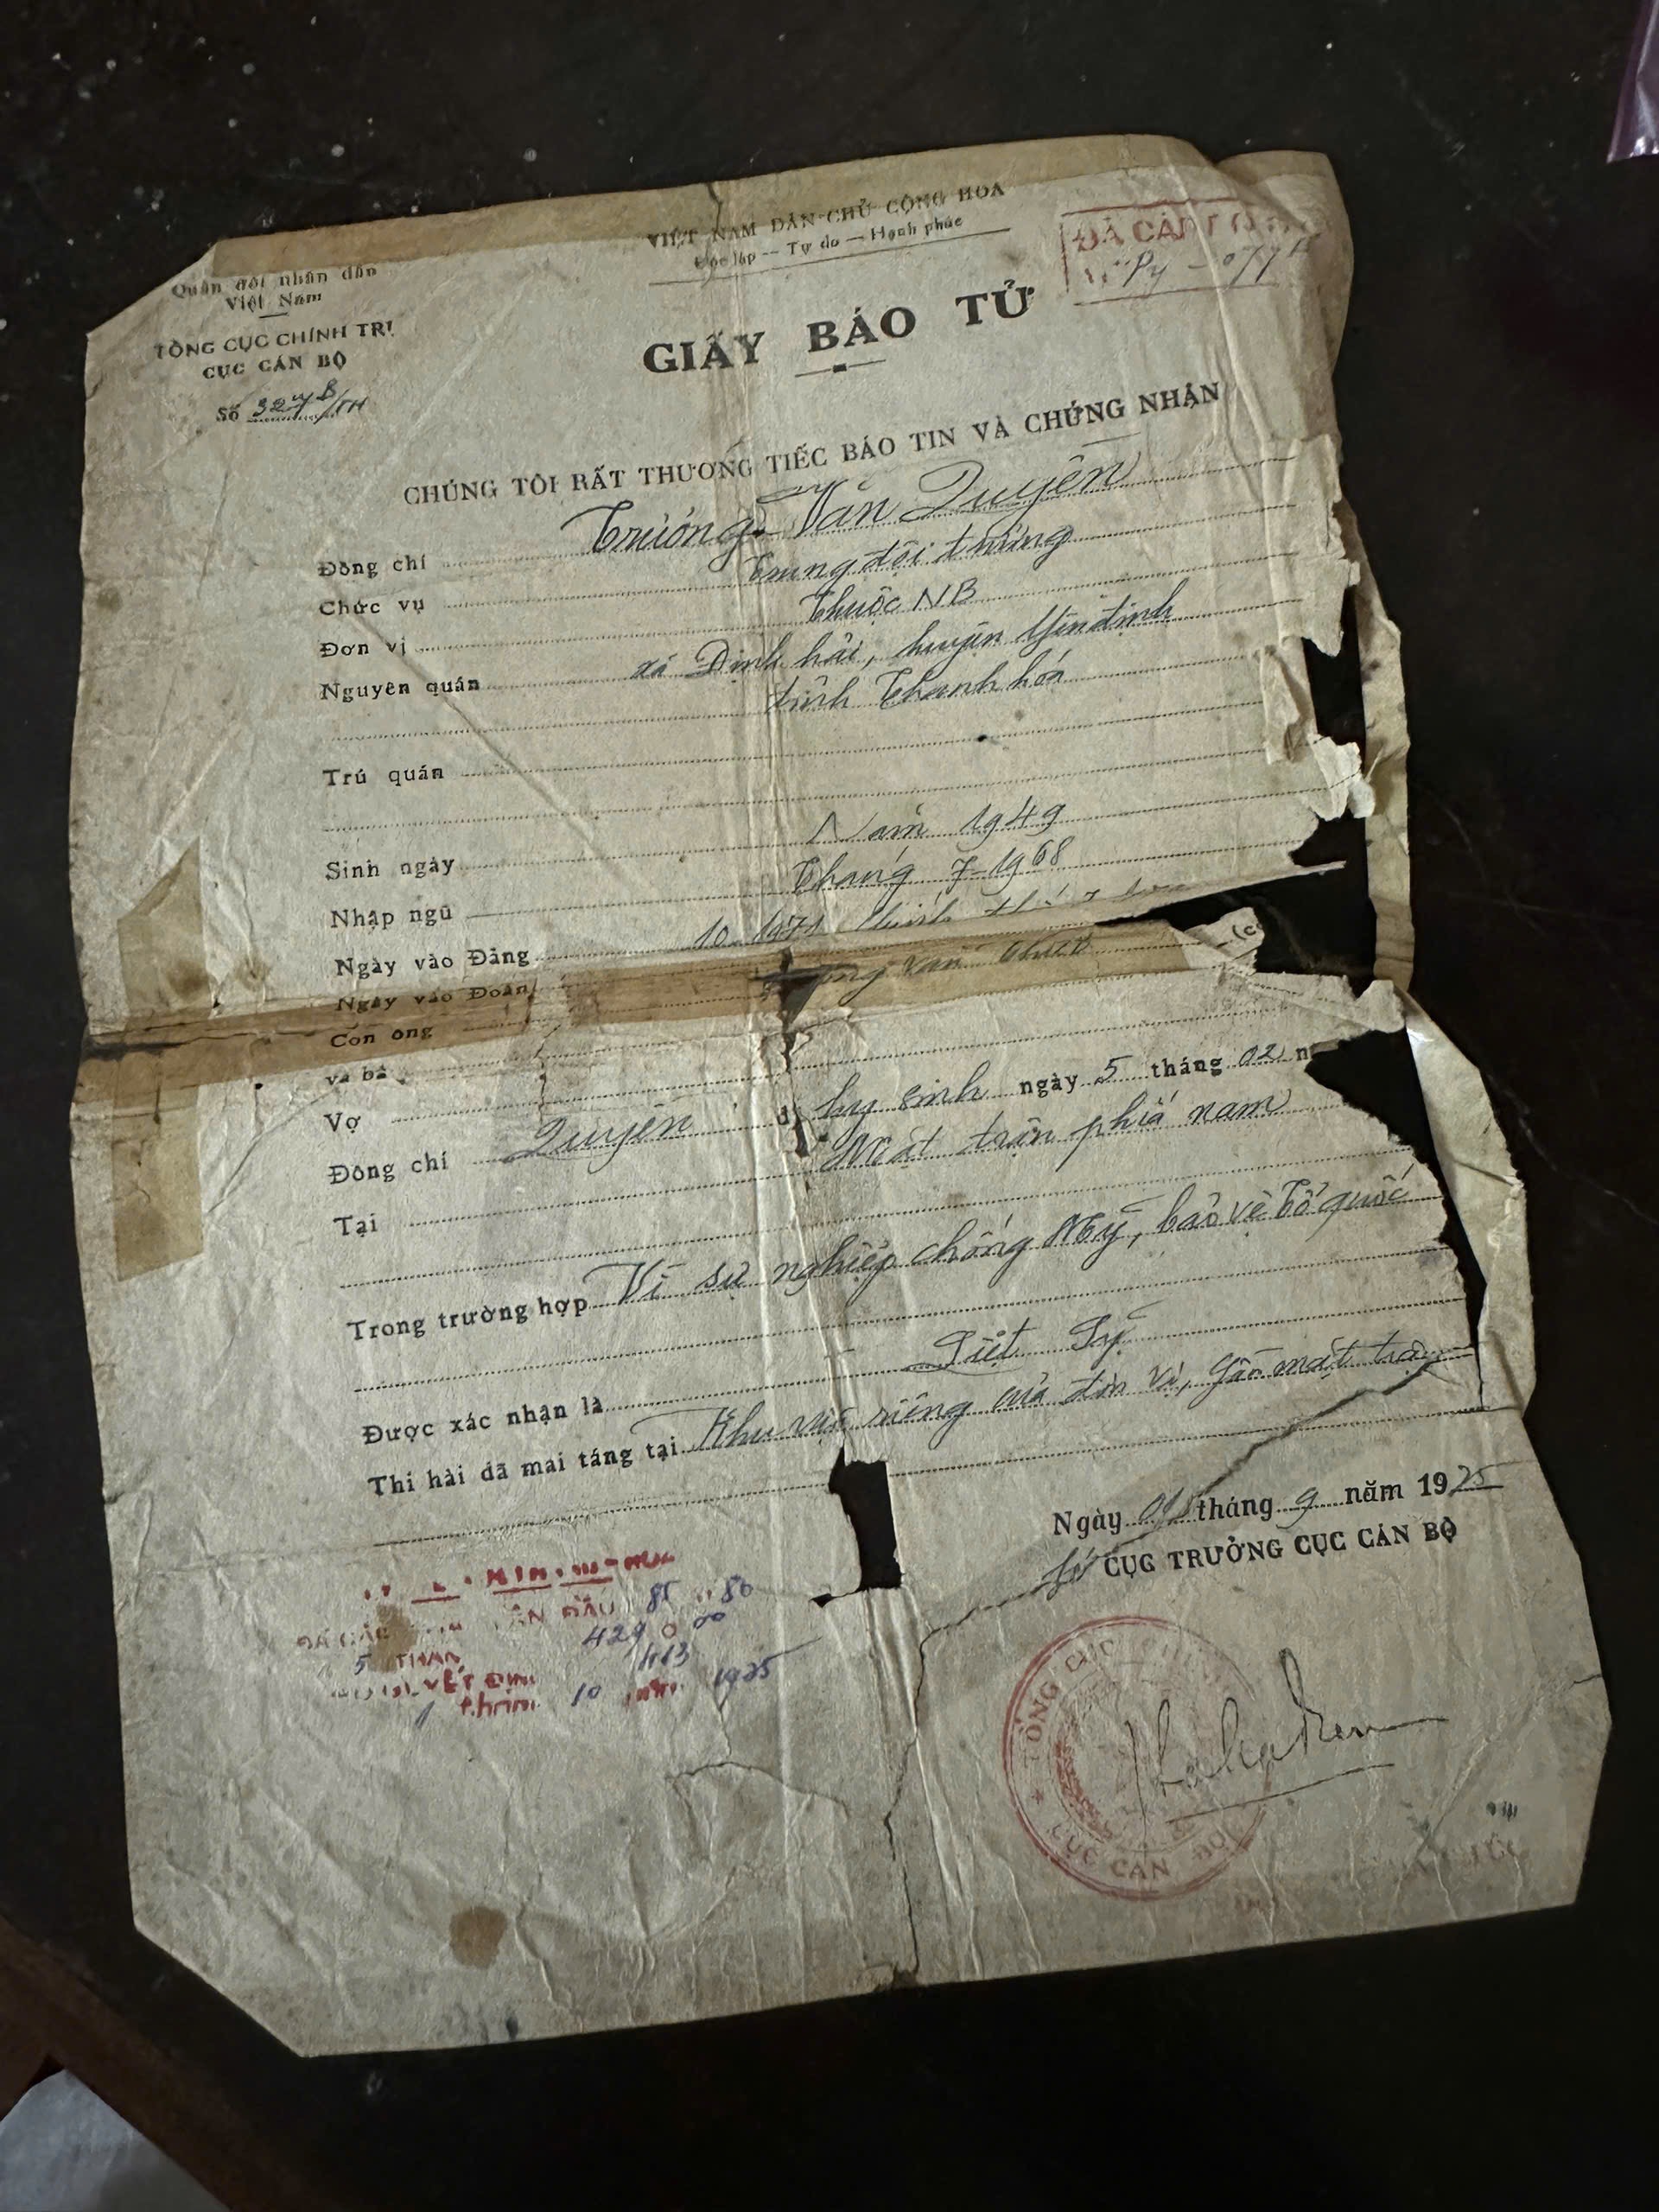 VIỆT NAM DÂN CHỦ CỘNG HÒA
Độc lập — Tự do — Hạnh phúc
Quân đội nhân dân
Việt Nam
TỔNG CỤC CHÍNH TRỊ
CỤC CÁN BỘ
Số /TH
ĐÃ CẤP
GIẤY BÁO TỬ
CHÚNG TÔI RẤT THƯƠNG TIẾC BÁO TIN VÀ CHỨNG NHẬN
Đồng chí Trương Văn Quyên
Chức vụ Trung đội trưởng
Đơn vị Thuộc NB
Nguyên quán xã Định hải, huyện Yên định
tỉnh Thanh hóa
Trú quán
Sinh ngày Năm 1949
Nhập ngũ Tháng 7-1968
Ngày vào Đảng 10-1971
Ngày vào Đoàn
Con ông văn
và bà
Vợ
Đồng chí Quyên hy sinh ngày 5 tháng 02 n
Tại Mặt trận phía nam
Trong trường hợp Vì sự nghiệp chống Mỹ, bảo vệ Tổ quốc
Được xác nhận là Liệt Sỹ
Thi hài đã mai táng tại Khu vực riêng của đơn vị, gần mặt trận
Ngày tháng 9 năm 1975
CỤC TRƯỞNG CỤC CÁN BỘ
ĐẦU
429
5 THÁN
QUYẾT ĐỊNH
10 1975
TỔNG CỤC CHÍNH
CỤC CÁN BỘ